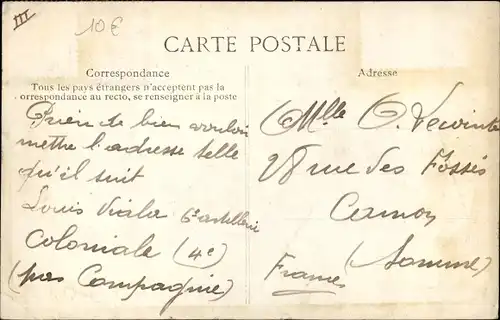 III
10€
CARTE POSTALE
Correspondance
Tous les pays étrangers n'acceptent pas la
correspondance au recto, se renseigner à la poste
Adresse
de bien vouloir
mettre l'adresse telle
qu'il suit
Louis Viala 6e artillerie
Coloniale (4e)
(pas Compagnie)
Mlle O.
28 rue des Fossés
(Somme)
France